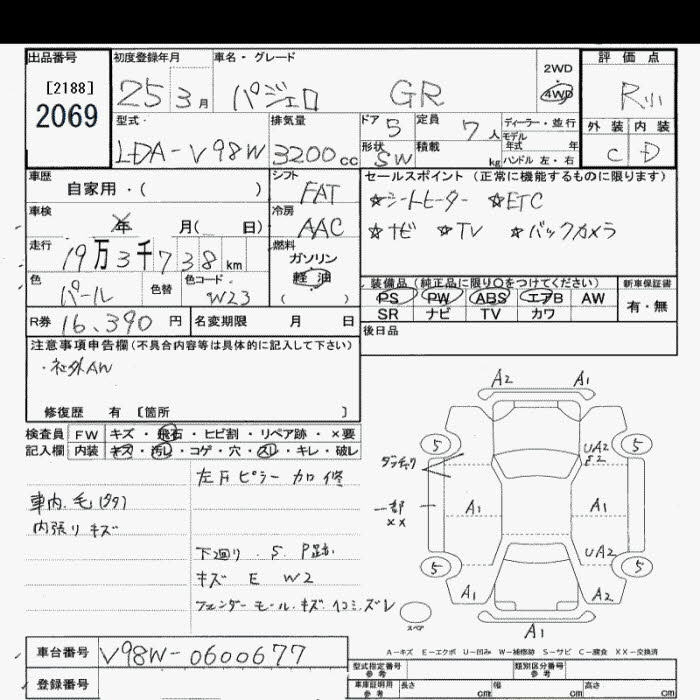 出品番号 初度登録年月 車名・グレード 2WD 評価点
[2188] 25 3月 パジェロ GR 4WD R小
2069 外装 内装
型式 排気量 ドア 5 定員 7人 ディーラー・並行 C D
モデル年式 年
LDA-V98W 3200cc 形状 SW 積載 kg ハンドル 左・右
車歴 自家用・( ) シフト FAT セールスポイント (正常に機能するものに限ります)
☆シートヒーター ☆ETC
車検 年 月( 日) 冷房 AAC ☆ナビ ☆TV ☆バックカメラ
走行 19万3千738km 燃料 ガソリン
軽油
( )
色 パール 色替 色コード W23 装備品 (純正品に限り○をつけてください) 新車保証書
PS PW ABS エアB AW 有・無
R券 16,390円 名変期限 月 日 SR ナビ TV カワ
注意事項申告欄 (不具合内容等は具体的に記入して下さい) 後日品
・社外AW
修復歴 有 [箇所 ]
検査員 FW キズ・飛石・ヒビ割・リペア跡・×要
記入欄 内装 キズ・汚レ・コゲ・穴・スレ・キレ・破レ
左Fピラー カロ修
車内 毛
内張りキズ
下廻り S P跡
キズ E W2
フェンダーモール キズ ズレ
A2 A1
5 UA2 5
一部 A1 A1
××
5 UA2 5
A1 A2
スペア
A1
A-キズ E-エクボ U-凹み W-補修跡 S-サビ C-腐食 XX-交換済
車台番号 V98W-0600677
型式指定番号 参考 類別区分番号 参考
登録番号 車庫証明用 参考 長さ cm 幅 cm 高さ cm